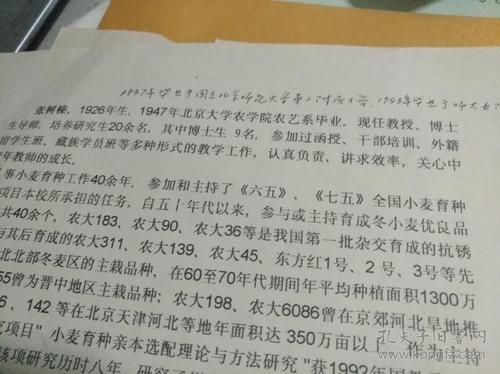 1937年毕业于国立北京师范大学第二附属小学、1943年毕业于师大
张树榛,1926年生,1947年北京大学农学院农艺系毕业。现任教授、博士
生导师,培养研究生20余名,其中博士生 9名,参加过函授、干部培训、外籍
留学生班、藏族学员班等多种形式的教学工作,认真负责,讲求效率,关心中
年教师的成长。
事小麦育种工作40余年,参加和主持了《六五》、《七五》全国小麦育种
项目本校所承担的任务。自五十年代以来,参与或主持育成冬小麦优良品
共40余个,农大183、农大90、农大36等是我国第一批杂交育成的抗锈
与其后育成的农大311、农大139、农大45、东方红1号、2 号、3号等先
北北部冬麦区的主栽品种,在60至70年代期间年平均种植面积1300万
55曾为晋中地区主栽品种;农大198、农大6086曾在京郊河北旱地推
6、142 等在北京天津河北等地年面积达 350万亩以
究项目"小麦育种亲本选配理论与方法研究"获1992年国
该项研究历时八年
孔夫子旧书网